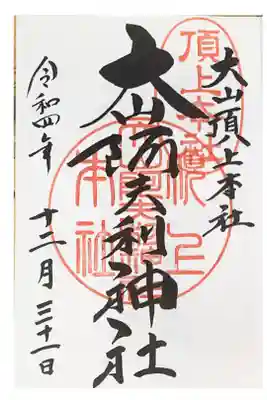 大山頂上本社
大山阿夫利神社
令和四年 十二月三十一日
頂上
本社